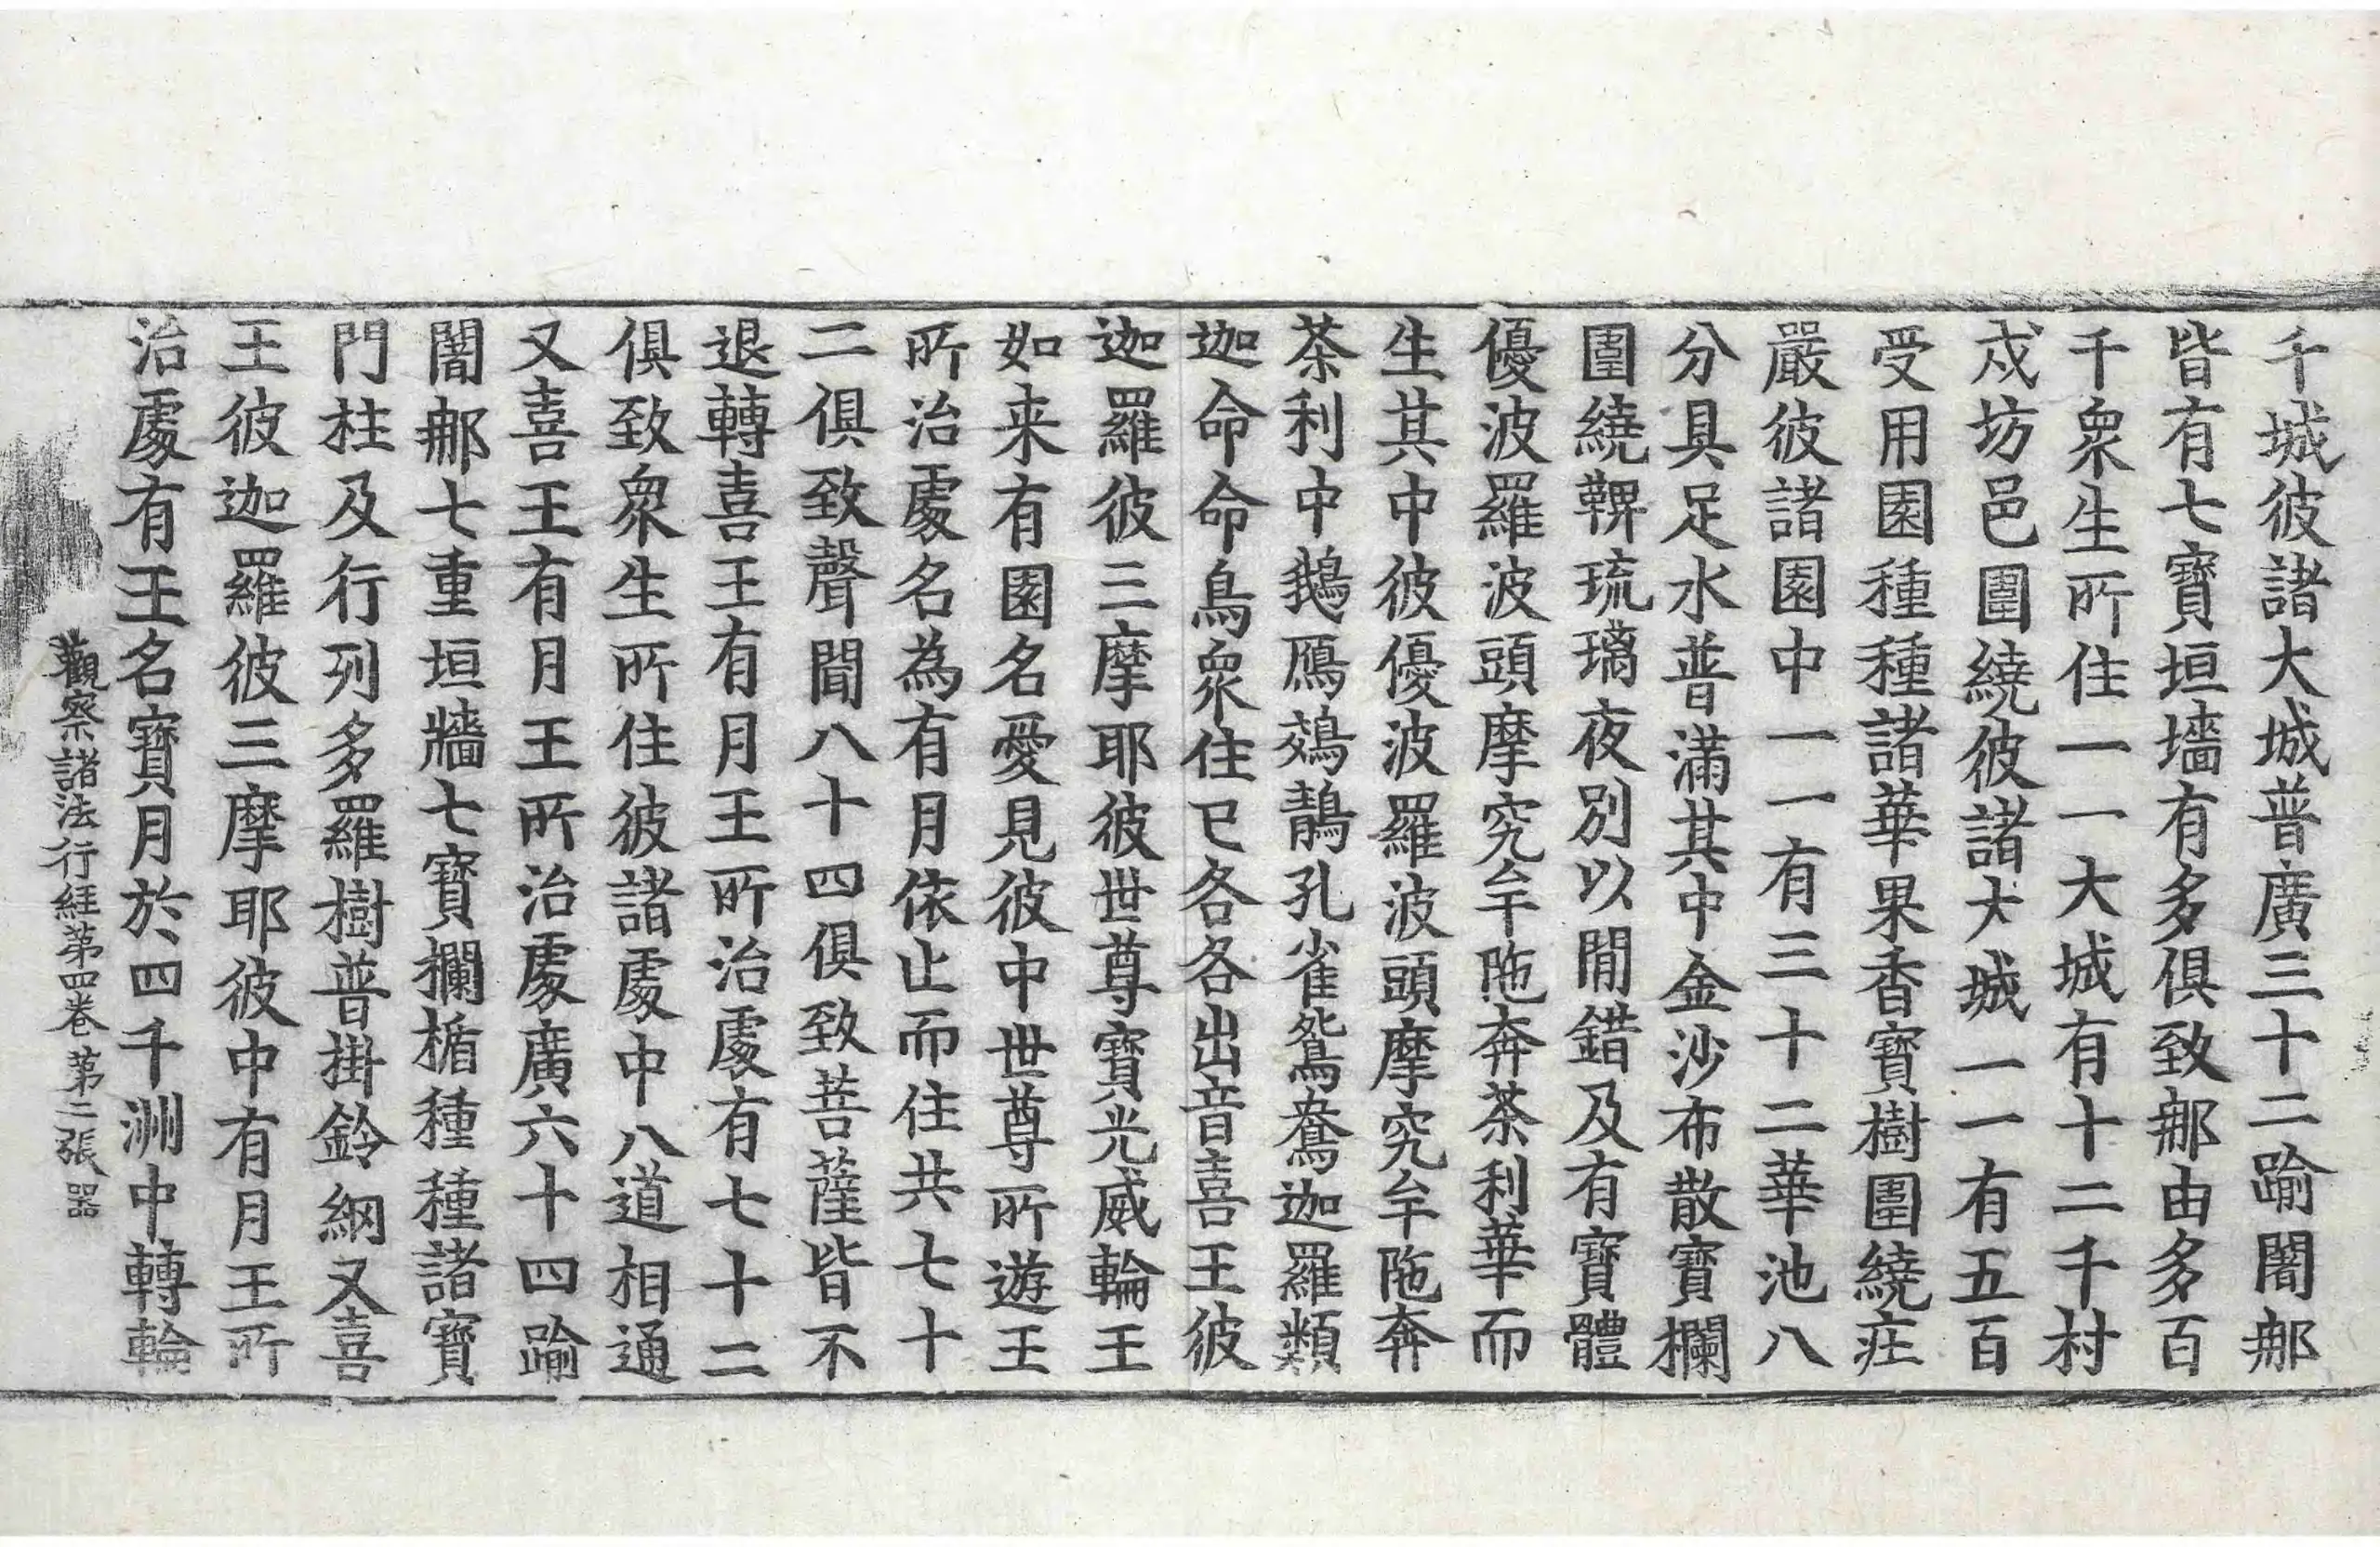 千城彼諸大城普廣三十二踰闍𨚗
皆有七寶垣墻有多俱致𨚗由多百
千衆生所住一一大城有十二千村
戍坊邑圍繞彼諸大城一一有五百
受用園種種諸華果香寶樹圍繞疘
嚴彼諸園中一一有三十二華池八
分具足水普滿其中金沙布散寶欄
圍繞鞞琉璃夜別以閒錯及有寶體
優波羅波頭摩究牟陁奔茶利華而
生其中彼優波羅波頭摩究牟陁奔
茶利中鵝鴈鵁鶄孔雀鴛鴦迦羅頻
迦命命鳥衆住已各各出音喜王彼
迦羅彼三摩耶彼世尊寶光威輪王
如来有園名愛見彼中世尊所遊王
所治處名為有月依止而住共七十
二俱致聲聞八十四俱致菩薩皆不
退轉喜王有月王所治處有七十二
俱致衆生所住彼諸處中八道相通
又喜王有月王所治處廣六十四踰
闍𨚗七重垣牆七寶欄楯種種諸寶
門柱及行列多羅樹普掛鈴網又喜
王彼迦羅彼三摩耶彼中有月王所
治處有王名寶月於四千洲中轉輪
觀察諸法行経苐四卷 苐二張 器